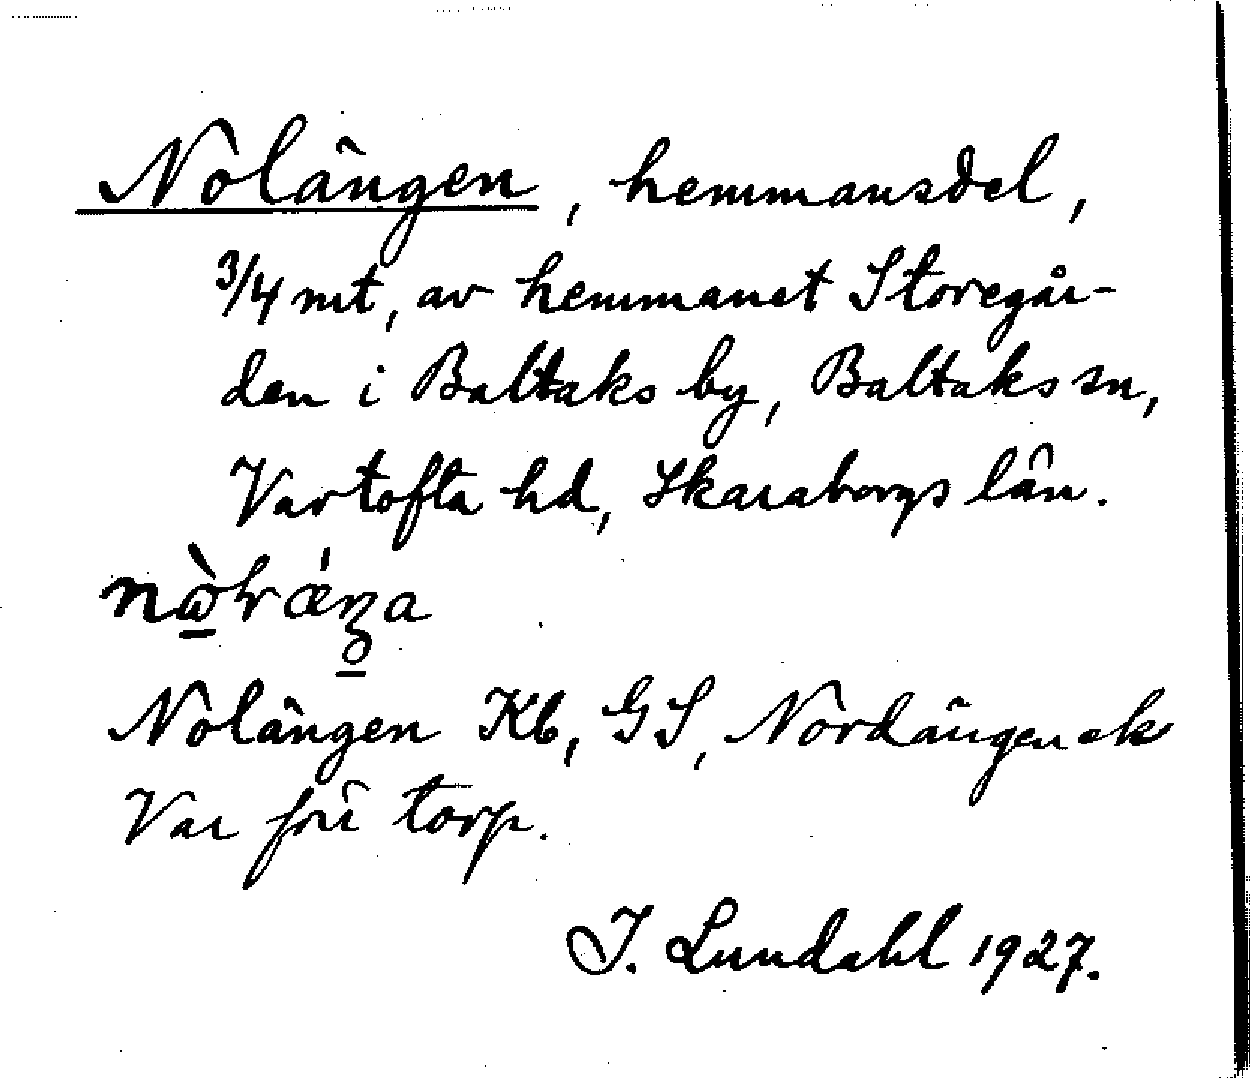 Nolängen, hemmansdel,
3/4 mt, av hemmanet Storegår-
den i Baltaks by, Baltaks sn,
Vartofta hd, Skaraborgs län.
Nolängen Kb, GS, Nordängen ek
Var förr torp.
I. Lundahl 1927.